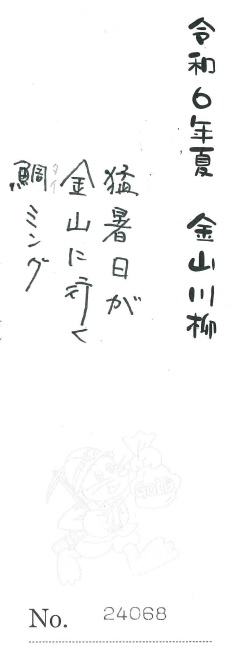 令和6年夏 金山川柳
猛暑日が
金山に行く
鯛ミング
タイ
GOLD
No. 24068